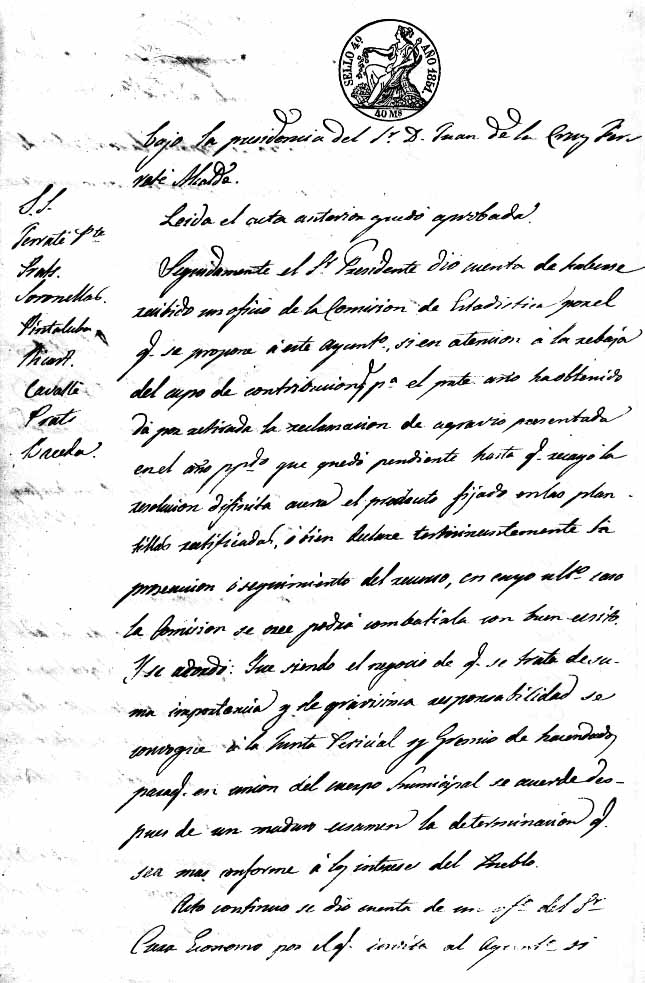 SELLO 4º AÑO 1851.
40 Ms
bajo la presidencia del Sr. D. Juan de la Cruz Fer-
raté Alcalde.
S.S.
Ferraté Pte
Prats.
Soronellas.
Pintaluba
Ricart.
Cavallé
Prats
Leida el acta anterior quedó aprobada.
Seguidamente el Sr Presidente dió cuenta de haberse
recibido un oficio de la Comision de Estadistica por el
q. se propone á este Ayunto, si en atencion á la rebaja
del cupo de contribucion pa el pnte año ha obtenido
dá por retirada la reclamacion de agravio presentada
en el año ppdo que quedó pendiente hasta q. recayó la
resolucion difinitiva acerca el producto fijado en las plan-
tillas ratificadas, ó bien declare terminantemente la
prosecucion ó seguimiento del recurso, en cuyo ulto caso
la Comision se cree podrá combatirla con buen ecsito.
Y se acordó: Que siendo el negocio de q. se trata de su-
ma importancia y de gravisima responsabilidad se
convoque á la Junta Pericial y Gremio de hacendados
paraq. en union del cuerpo Municipal se acuerde des-
pues de un maduro ecsamen la determinacion q.
sea mas conforme á los intereses del Pueblo.
Acto continuo se dió cuenta de un ofo del Sr
Cura Economo por el q. invita al Ayunto si